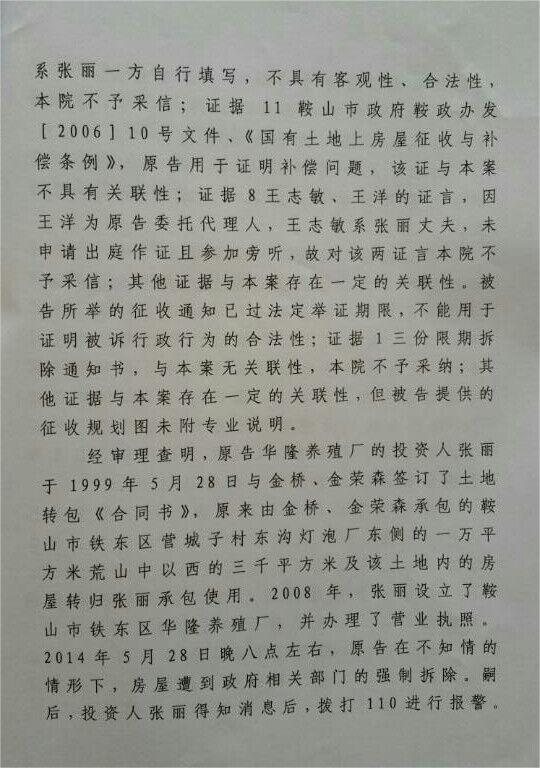 系张丽一方自行填写，不具有客观性、合法性，
本院不予采信；证据 11 鞍山市政府鞍政办发
[2006]10 号文件、《国有土地上房屋征收与补
偿条例》，原告用于证明补偿问题，该证与本案
不具有关联性；证据 8 王志敏、王洋的证言，因
王洋为原告委托代理人，王志敏系张丽丈夫，未
申请出庭作证且参加旁听，故对该两证言本院不
予采信；其他证据与本案存在一定的关联性。被
告所举的征收通知已过法定举证期限，不能用于
证明被诉行政行为的合法性；证据 1 三份限期拆
除通知书，与本案无关联性，本院不予采纳；其
他证据与本案存在一定的关联性，但被告提供的
征收规划图未附专业说明。
经审理查明，原告华隆养殖厂的投资人张丽
于 1999 年 5 月 28 日与金桥、金荣森签订了土地
转包《合同书》，原来由金桥、金荣森承包的鞍
山市铁东区营城子村东沟灯泡厂东侧的一万平
方米荒山中以西的三千平方米及该土地内的房
屋转归张丽承包使用。2008 年，张丽设立了鞍
山市铁东区华隆养殖厂，并办理了营业执照。
2014 年 5 月 28 日晚八点左右，原告在不知情的
情形下，房屋遭到政府相关部门的强制拆除。嗣
后，投资人张丽得知消息后，拨打 110 进行报警。